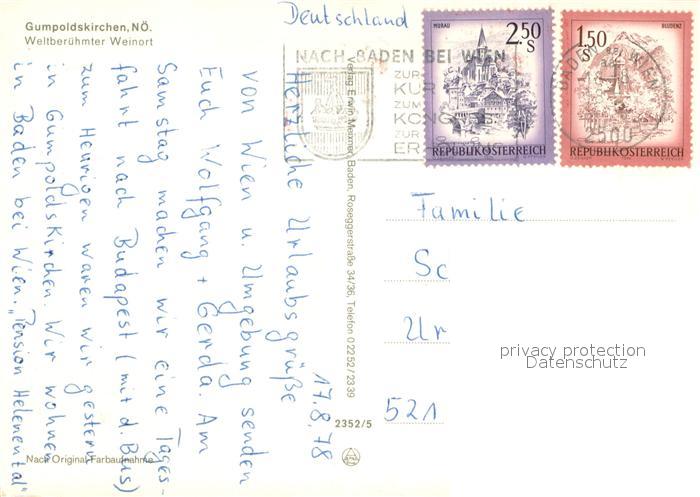 Gumpoldskirchen, NÖ.
Weltberühmter Weinort
Deutschland
MURAU
2.50
S
REPUBLIK ÖSTERREICH
BLUDENZ
1.50
S
REPUBLIK ÖSTERREICH
NACH BADEN BEI WIEN
ZUR
KUR
ZUM
KONG
ZUR
ER
BADEN BEI WIEN
2500
17.8.78
Herzliche Urlaubsgrüße
von Wien u. Umgebung senden
Euch Wolfgang + Gerda. Am
Samstag machen wir eine Tages-
fahrt nach Budapest (mit d. Bus)
zum Heurigen waren wir gestern
in Gumpoldskirchen. Wir wohnen
in Baden bei Wien. "Pension Helenental"
Verlag Erwin Metzner, Baden, Roseggerstraße 34/36, Telefon 02252/2339
2352/5
Familie
Sc
Ur
521
privacy protection
Datenschutz
Nach Original-Farbaufnahme